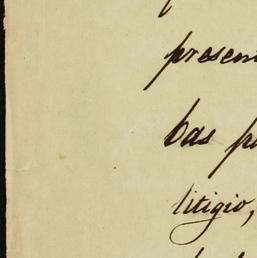 presen
bas pa
litigio,